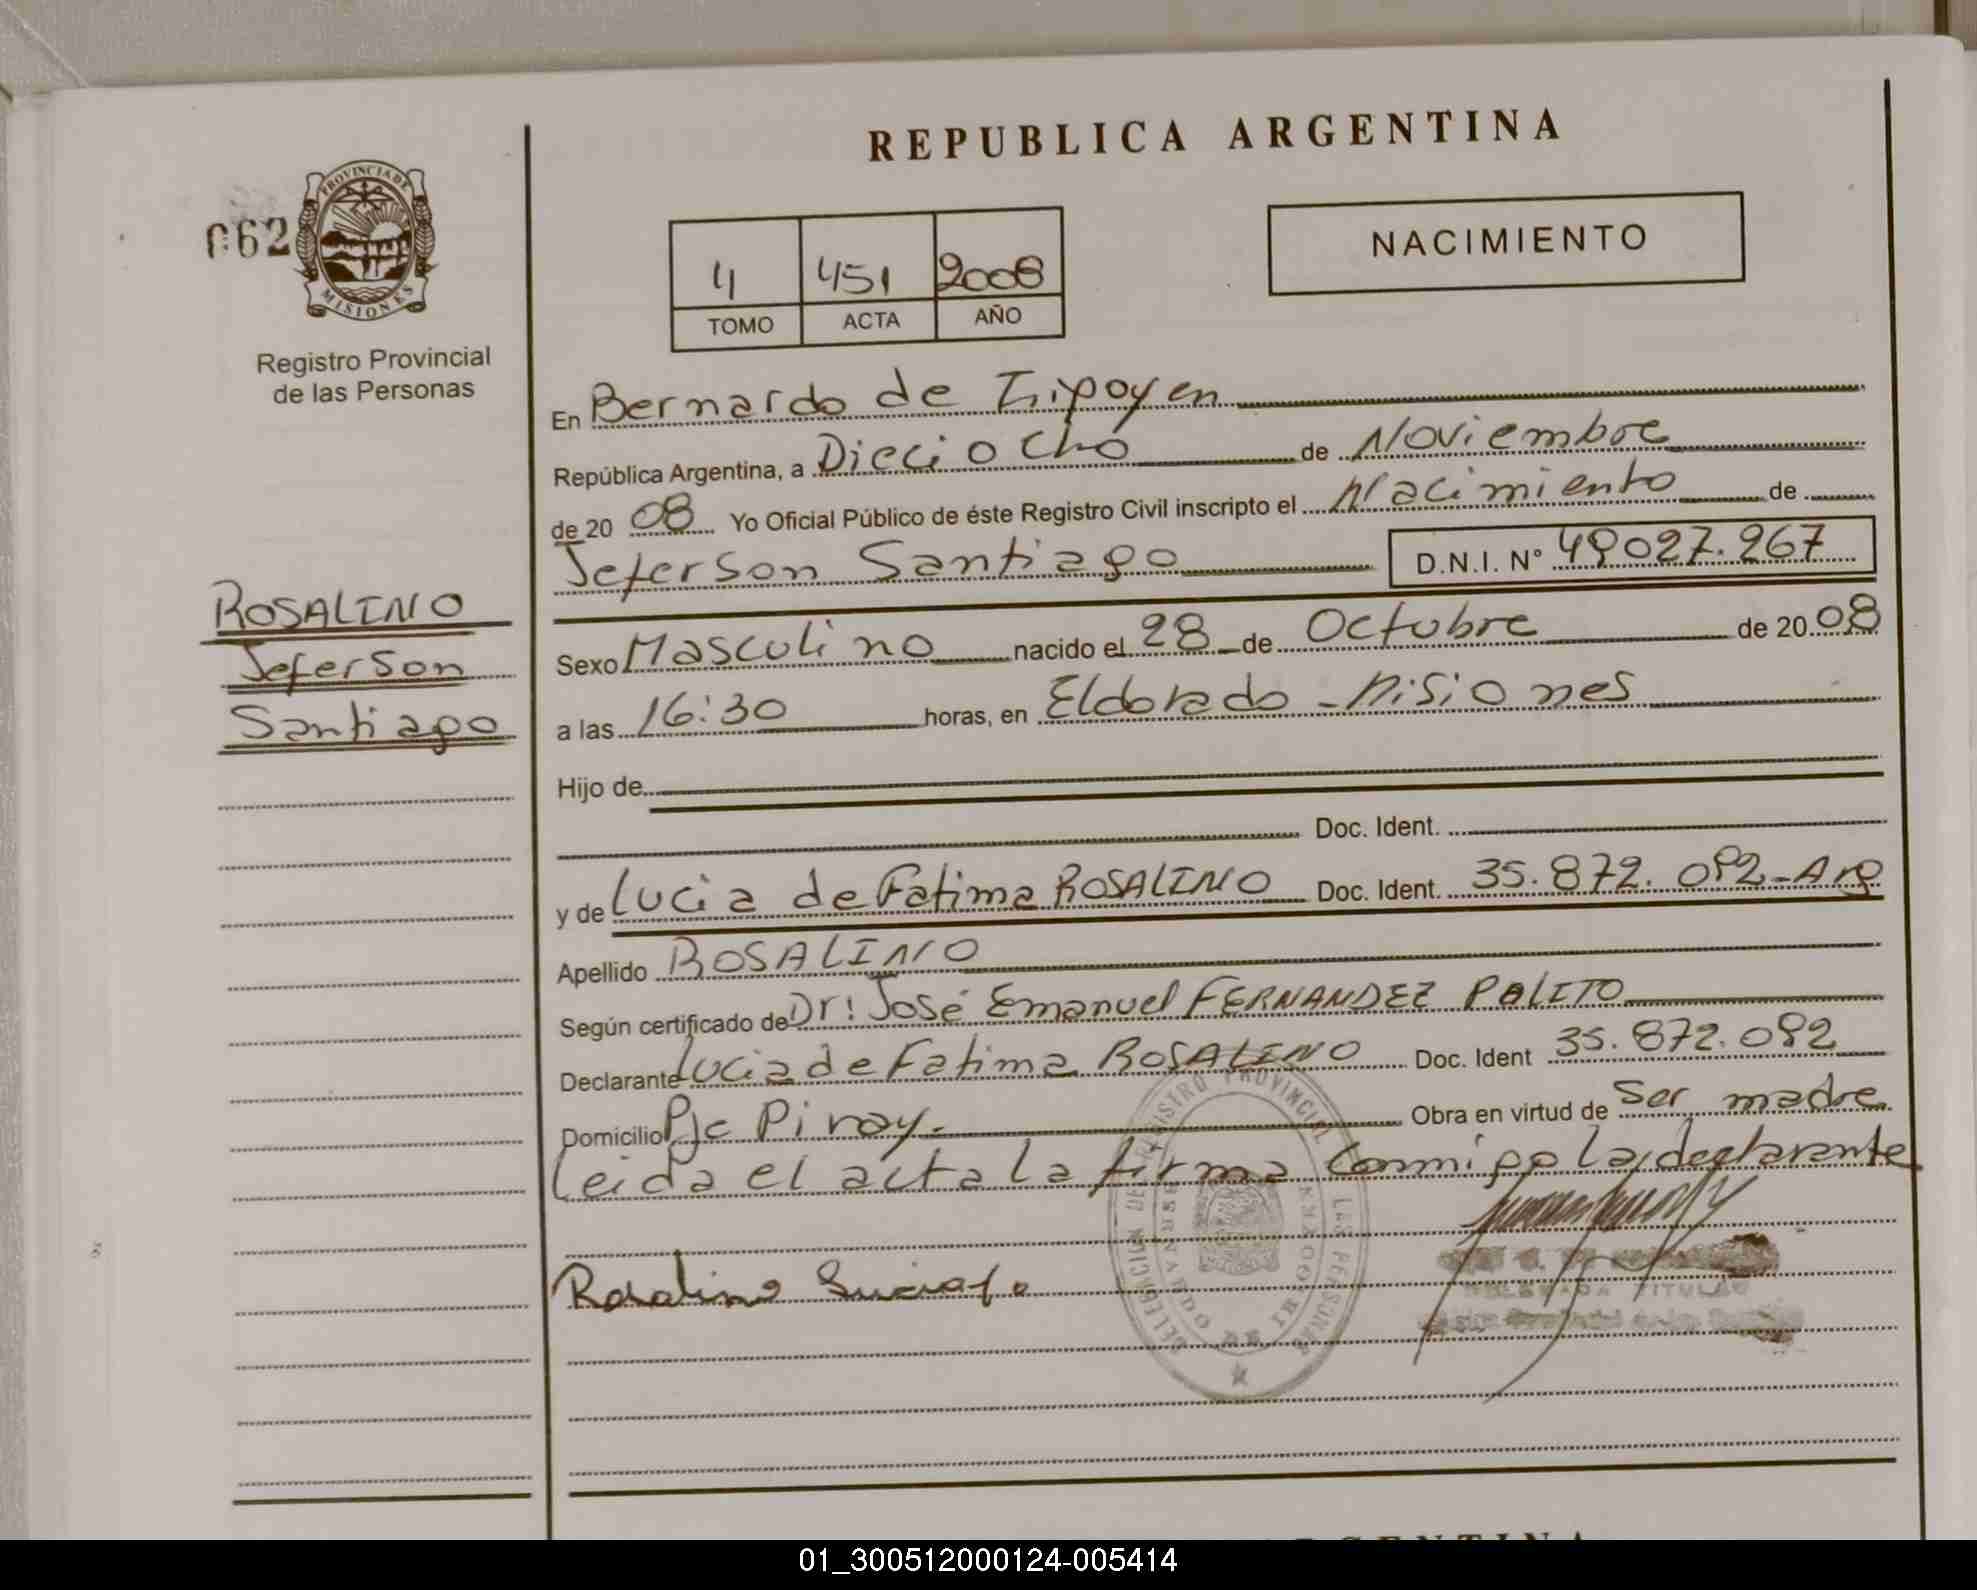 REPUBLICA ARGENTINA
062
PROVINCIA DE
MISIONES
Registro Provincial
de las Personas
4 451 2008
TOMO ACTA AÑO
NACIMIENTO
En Bernardo de Irigoyen
República Argentina, a Dieci ocho de Noviembre
de 20 08 Yo Oficial Público de éste Registro Civil inscripto el Nacimiento de
Jeferson Santiago D.N.I. Nº 49027.267
ROSALINO
Jeferson
Santiago
Sexo Masculino nacido el 28 de Octubre de 20 08
a las 16:30 horas, en Eldorado - Misiones
Hijo de
Doc. Ident.
y de Lucia de Fatima ROSALINO Doc. Ident. 35.872.092-Arg
Apellido ROSALINO
Según certificado de Dr: José Emanuel FERNANDEZ POLITO
Declarante Lucia de Fatima ROSALINO Doc. Ident 35.872.092
Domicilio Pje Piray. Obra en virtud de Ser madre
Leida el acta la firma Conmigo la declarante
REGISTRO PROVINCIAL DE LAS PERSONAS
BERNARDO DE IRIGOYEN
DELEGADA TITULAR
Rosalino Lucia f.
ARGENTINA
01_300512000124-005414